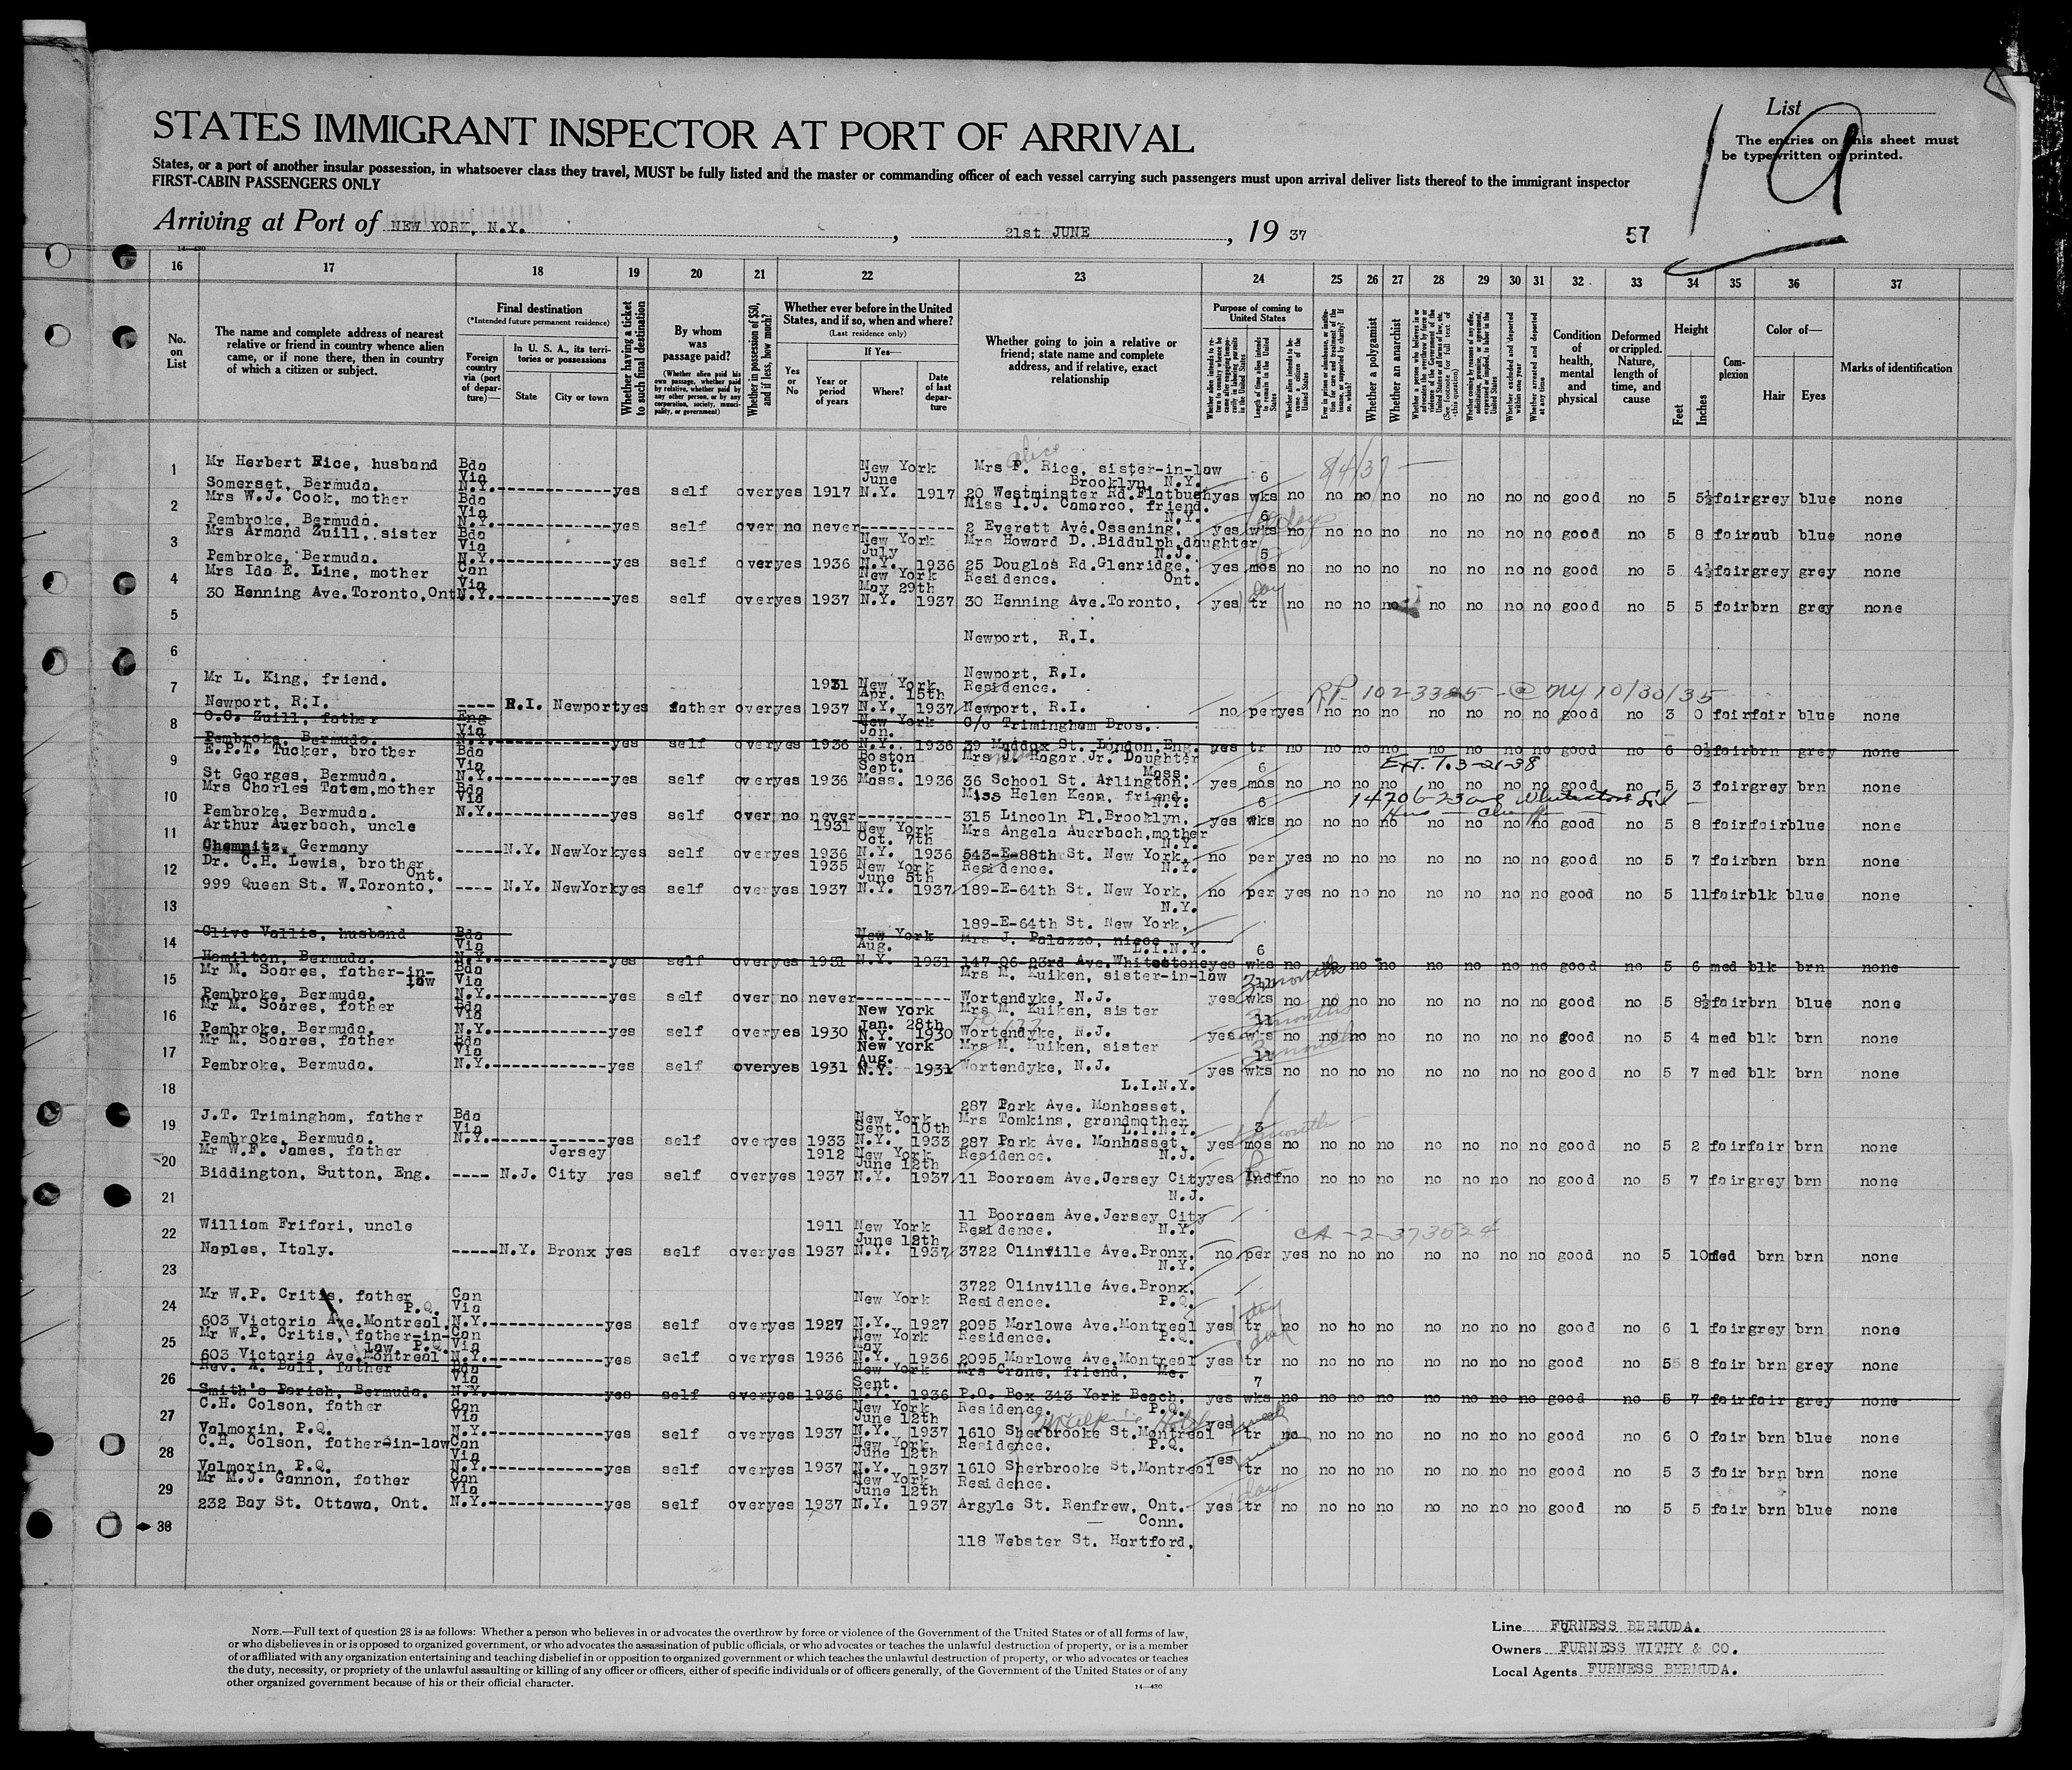 List
1 9
STATES IMMIGRANT INSPECTOR AT PORT OF ARRIVAL
The entries on this sheet must
be typewritten or printed.
States, or a port of another insular possession, in whatsoever class they travel, MUST be fully listed and the master or commanding officer of each vessel carrying such passengers must upon arrival deliver lists thereof to the immigrant inspector
FIRST-CABIN PASSENGERS ONLY
Arriving at Port of NEW YORK, N.Y. , 21st JUNE , 19 37
57
14—430
16 17 18 19 20 21 22 23 24 25 26 27 28 29 30 31 32 33 34 35 36 37
No. on List
The name and complete address of nearest relative or friend in country whence alien came, or if none there, then in country of which a citizen or subject.
Final destination
(*Intended future permanent residence)
Foreign country via (port of departure)—
In U. S. A., its territories or possessions
State
City or town
Whether having a ticket to such final destination
By whom was passage paid?
(Whether alien paid his own passage, whether paid by relative, whether paid by any other person, or by any corporation, society, municipality, or government)
Whether in possession of $50, and if less, how much?
Whether ever before in the United States, and if so, when and where?
(Last residence only)
Yes or No
If Yes—
Year or period of years
Where?
Date of last departure
Whether going to join a relative or friend; state name and complete address, and if relative, exact relationship
Purpose of coming to United States
Whether a polygamist
Whether an anarchist
Condition of health, mental and physical
Deformed or crippled. Nature, length of time, and cause
Height
Feet
Inches
Complexion
Color of—
Hair
Eyes
Marks of identification
1 Mr Herbert Rice, husband Bda New York Mrs F. Rice, sister-in-law 8/4/37
Alice
Via June Brooklyn, N.Y. 6
Somerset, Bermuda. N.Y. yes self over yes 1917 N.Y. 1917 20 Westminster Rd. Flatbush yes wks no no no no no no no no good no 5 5½ fair grey blue none
2 Mrs W.J. Cook, mother Bda Miss I.J. Camarco, friend.
Via N.Y. 6
Pembroke, Bermuda. N.Y. yes self over no never 2 Everett Ave. Ossening, yes wks no no no no no no no no good no 5 8 fair aub blue none
3 Mrs Armand Zuill, sister Bda New York Mrs Howard D. Biddulph, daughter
Via July N.J. 5
Pembroke, Bermuda. N.Y. yes self over yes 1936 N.Y. 1936 25 Douglas Rd. Glenridge, yes mos no no no no no no no no good no 5 4½ fair grey grey none
4 Mrs Ida E. Line, mother Can New York Residence. Ont.
Via May 29th
30 Henning Ave. Toronto, Ont N.Y. yes self over yes 1937 N.Y. 1937 30 Henning Ave. Toronto, yes tr no no no no no no no no good no 5 5 fair brn grey none
5
Newport, R.I.
6
Newport, R.I.
7 Mr L. King, friend. 1931 New York Residence.
Apr. 15th RP 102-3385 - @ NY 10/30/35
Newport, R.I. ---- R.I. Newport yes father over yes 1937 N.Y. 1937 Newport, R.I. no per yes no no no no no no no good no 3 0 fair fair blue none
8 O.C. Zuill, father Eng New York C/o Trimingham Bros.
Via Jan.
Pembroke, Bermuda. N.Y. yes self over yes 1936 N.Y. 1936 39 Maddox St. London, Eng. yes tr no no no no no no no no good no 6 0½ fair brn grey none
9 E.P.T. Tucker, brother Bda Boston Mrs J. Hagar Jr. Daughter
Via Sept. Mass. 6 Ext. T. 3-21-38
St Georges, Bermuda. N.Y. yes self over yes 1936 Mass. 1936 36 School St. Arlington, yes mos no no no no no no no no good no 5 3 fair grey brn none
10 Mrs Charles Tatem, mother Bda Miss Helen Kean, friend.
Via N.Y. 6
Pembroke, Bermuda. N.Y. yes self over no never 315 Lincoln Pl. Brooklyn, yes wks no no no no no no no no good no 5 8 fair fair blue none
11 Arthur Auerbach, uncle 1931 New York Mrs Angela Auerbach, mother
Oct. 7th N.Y.
Chemnitz, Germany ----- N.Y. NewYork yes self over yes 1936 N.Y. 1936 543-E-88th St. New York, no per yes no no no no no no no good no 5 7 fair brn brn none
12 Dr. C.H. Lewis, brother 1935 New York Residence. N.Y.
Ont. June 5th
999 Queen St. W. Toronto, ---- N.Y. NewYork yes self over yes 1937 N.Y. 1937 189-E-64th St. New York, no per yes no no no no no no no good no 5 11 fair blk blue none
13 N.Y.
189-E-64th St. New York,
14 Clive Vallis, husband Bda New York Mrs J. Palazzo, niece
Via Aug. L.I.N.Y. 6
Hamilton, Bermuda. N.Y. yes self over yes 1931 N.Y. 1931 147-06-23rd Ave. Whitestone yes wks no no no no no no no no good no 5 6 med blk brn none
15 Mr M. Soares, father-in-law Bda Mrs M. Kuiken, sister-in-law
Via 3 months 11
Pembroke, Bermuda. N.Y. yes self over no never Wortendyke, N.J. yes wks no no no no no no no no good no 5 8½ fair brn blue none
16 Mr M. Soares, father Bda New York Mrs M. Kuiken, sister
Via Jan. 28th 3 months 11
Pembroke, Bermuda. N.Y. yes self over yes 1930 N.Y. 1930 Wortendyke, N.J. yes wks no no no no no no no no good no 5 4 med blk brn none
17 Mr M. Soares, father Bda New York Mrs M. Kuiken, sister
Via Aug. 3 months 11
Pembroke, Bermuda. N.Y. yes self over yes 1931 N.Y. 1931 Wortendyke, N.J. yes wks no no no no no no no no good no 5 7 med blk brn none
18 L.I.N.Y.
287 Park Ave. Manhasset,
19 J.T. Trimingham, father Bda New York Mrs Tomkins, grandmother
Via Sept. 10th L.I.N.Y. 3
Pembroke, Bermuda. N.Y. yes self over yes 1933 N.Y. 1933 287 Park Ave. Manhasset, yes mos no no no no no no no no good no 5 2 fair fair brn none
20 Mr W.F. James, father Jersey 1912 New York Residence. N.J.
June 12th
Biddington, Sutton, Eng. ---- N.J. City yes self over yes 1937 N.Y. 1937 11 Booraem Ave. Jersey City yes Indf no no no no no no no no good no 5 7 fair grey brn none
21 N.J.
11 Booraem Ave. Jersey City
22 William Frifari, uncle 1911 New York Residence. N.Y. CA-2-373524
June 12th
Naples, Italy. ----- N.Y. Bronx yes self over yes 1937 N.Y. 1937 3722 Olinville Ave. Bronx, no per yes no no no no no no no good no 5 10 med brn brn none
23 N.Y.
3722 Olinville Ave. Bronx,
24 Mr W.P. Critis, father Can New York Residence. P.Q.
P.Q. Via
603 Victoria Ave. Montreal, N.Y. yes self over yes 1927 N.Y. 1927 2095 Marlowe Ave. Montreal yes tr no no no no no no no no good no 6 1 fair grey brn none
25 Mr W.P. Critis, father-in-law. Can New York Residence. P.Q.
P.Q. Via May
603 Victoria Ave. Montreal N.Y. yes self over yes 1936 N.Y. 1936 2095 Marlowe Ave. Montreal yes tr no no no no no no no no good no 5 8 fair brn grey none
26 Rev. A. Bull, father Bda New York Mrs Crane, friend, Me.
Via Sept. 7
Smith's Parish, Bermuda. N.Y. yes self over yes 1936 N.Y. 1936 P.O. Box 343 York Beach, yes wks no no no no no no no no good no 5 7 fair fair grey none
27 C.H. Colson, father Can New York Residence. P.Q.
Via June 12th McAlpin Hotel
Valmorin, P.Q. N.Y. yes self over yes 1937 N.Y. 1937 1610 Sherbrooke St. Montreal yes tr no no no no no no no no good no 6 0 fair brn blue none
28 C.H. Colson, father-in-law Can New York Residence. P.Q.
Via June 12th
Valmorin, P.Q. N.Y. yes self over yes 1937 N.Y. 1937 1610 Sherbrooke St. Montreal yes tr no no no no no no no no good no 5 3 fair brn brn none
29 Mr M.J. Gannon, father Can New York Residence.
Via June 12th
232 Bay St. Ottawa, Ont. N.Y. yes self over yes 1937 N.Y. 1937 Argyle St. Renfrew, Ont. yes tr no no no no no no no no good no 5 5 fair brn blue none
30 Conn.
118 Webster St. Hartford,
NOTE.—Full text of question 28 is as follows: Whether a person who believes in or advocates the overthrow by force or violence of the Government of the United States or of all forms of law,
or who disbelieves in or is opposed to organized government, or who advocates the assassination of public officials, or who advocates or teaches the unlawful destruction of property, or is a member
of or affiliated with any organization entertaining and teaching disbelief in or opposition to organized government or which teaches the unlawful destruction of property, or who advocates or teaches
the duty, necessity, or propriety of the unlawful assaulting or killing of any officer or officers, either of specific individuals or of officers generally, of the Government of the United States or of any
other organized government because of his or their official character.
14—430
Line FURNESS BERMUDA.
Owners FURNESS WITHY & CO.
Local Agents FURNESS BERMUDA.